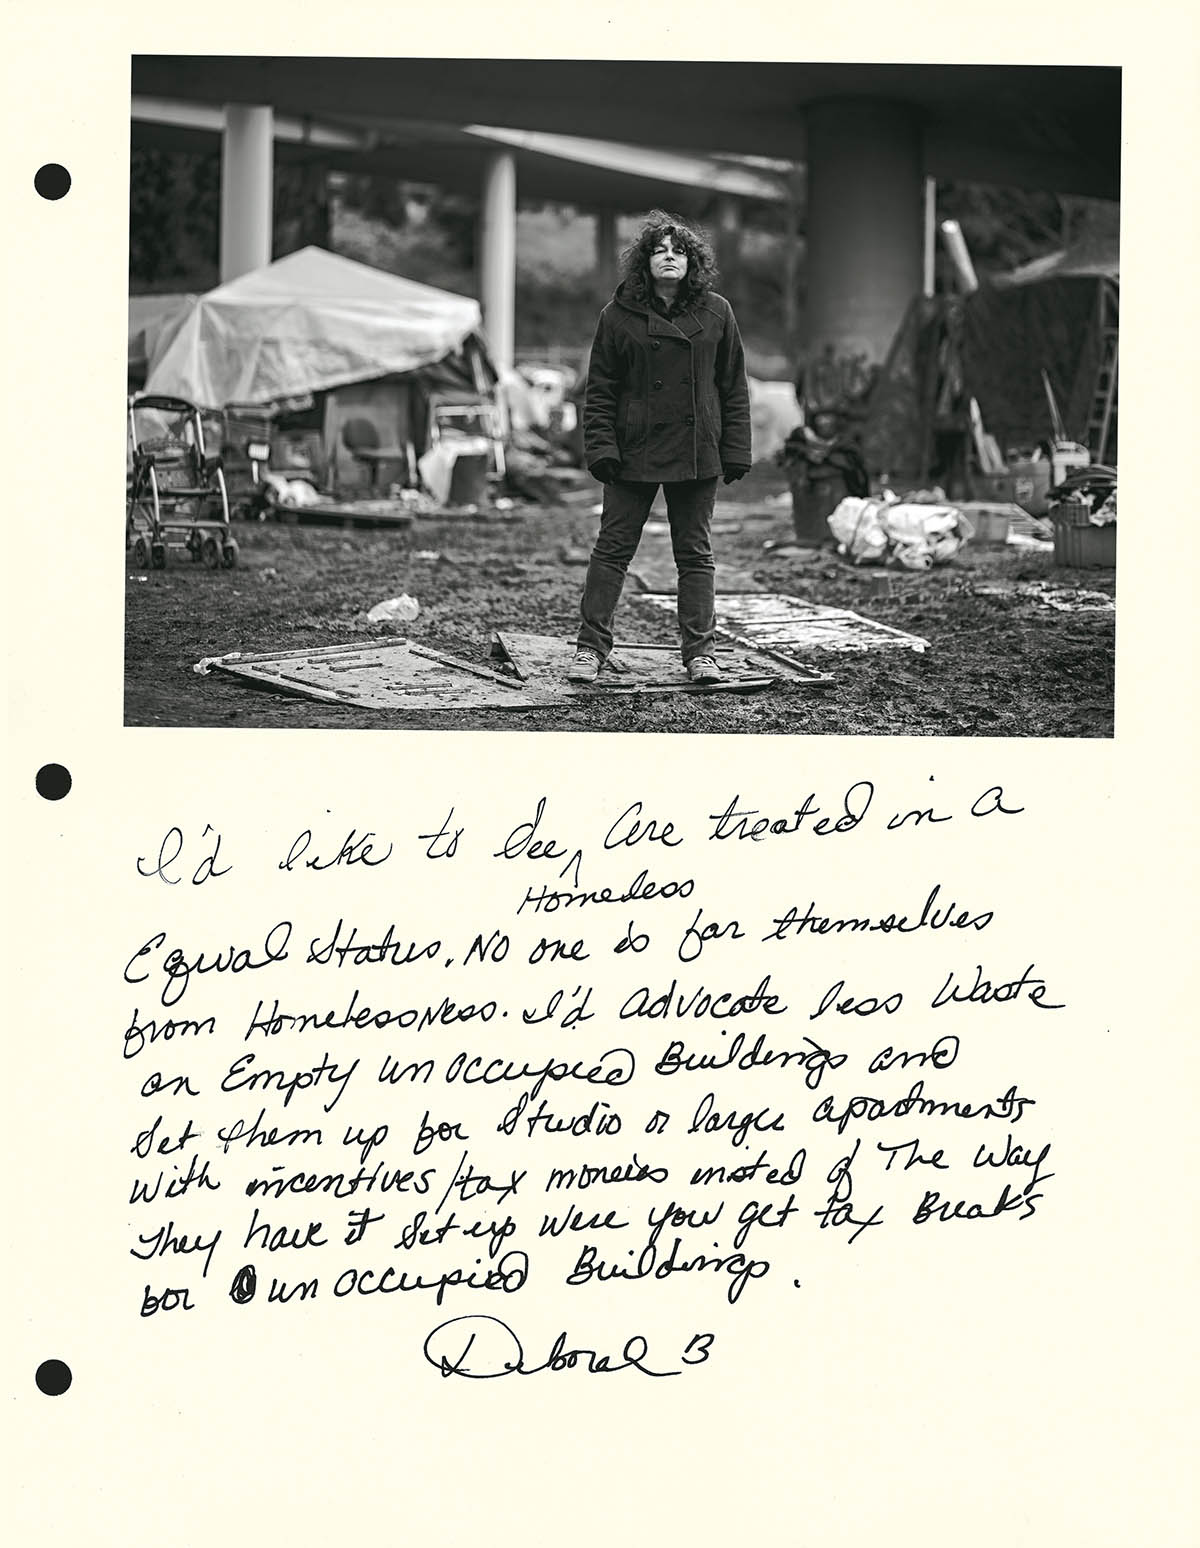 I'd like to See Homeless are treated in a
Equal Status. No one is far themselves
from Homelessness. I'd advocate less Waste
on Empty unoccupied Buildings and
Set them up for Studio or larger apartments
With incentives/tax moneies insted of The Way
They have it Set up Were you get tax Breaks
for unoccupied Buildings.
Deborah B